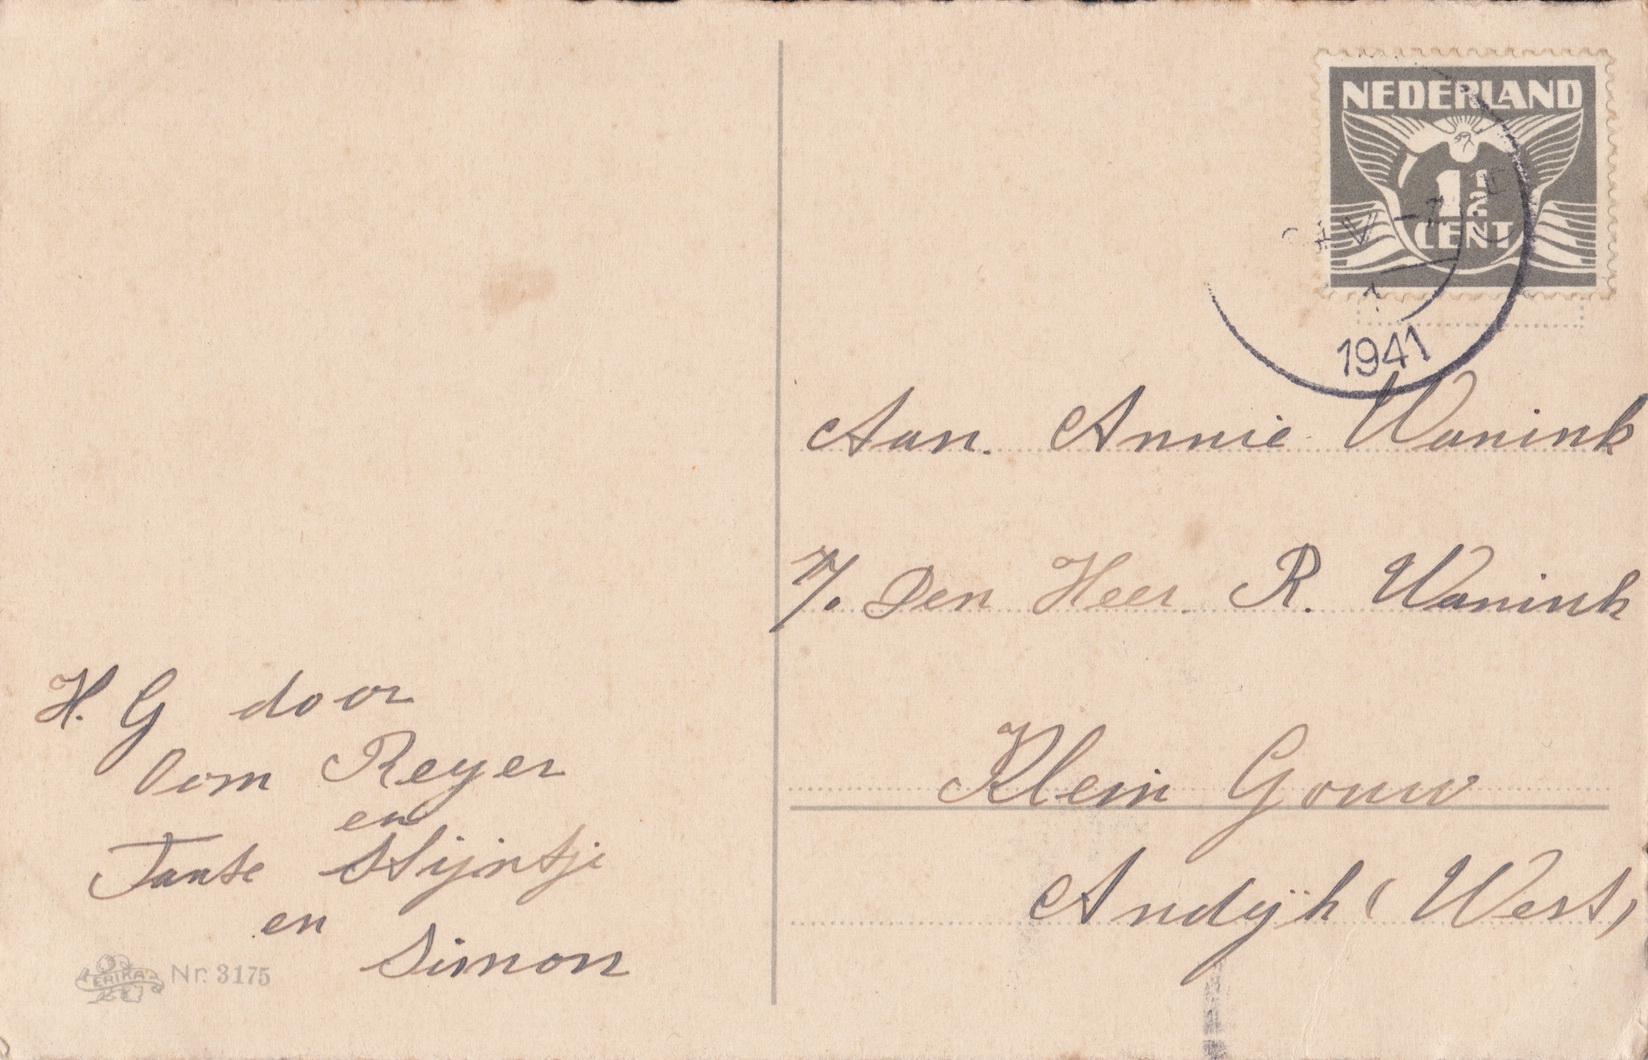 NEDERLAND
1½
CENT
1941
Aan. Annie Wanink
p/. Den Heer. R. Wanink
Klein Gouw
Andijk (West)
H. G door
Oom Reyer
en
Tante Stijntje
en
Simon
ERIKA Nr. 3175